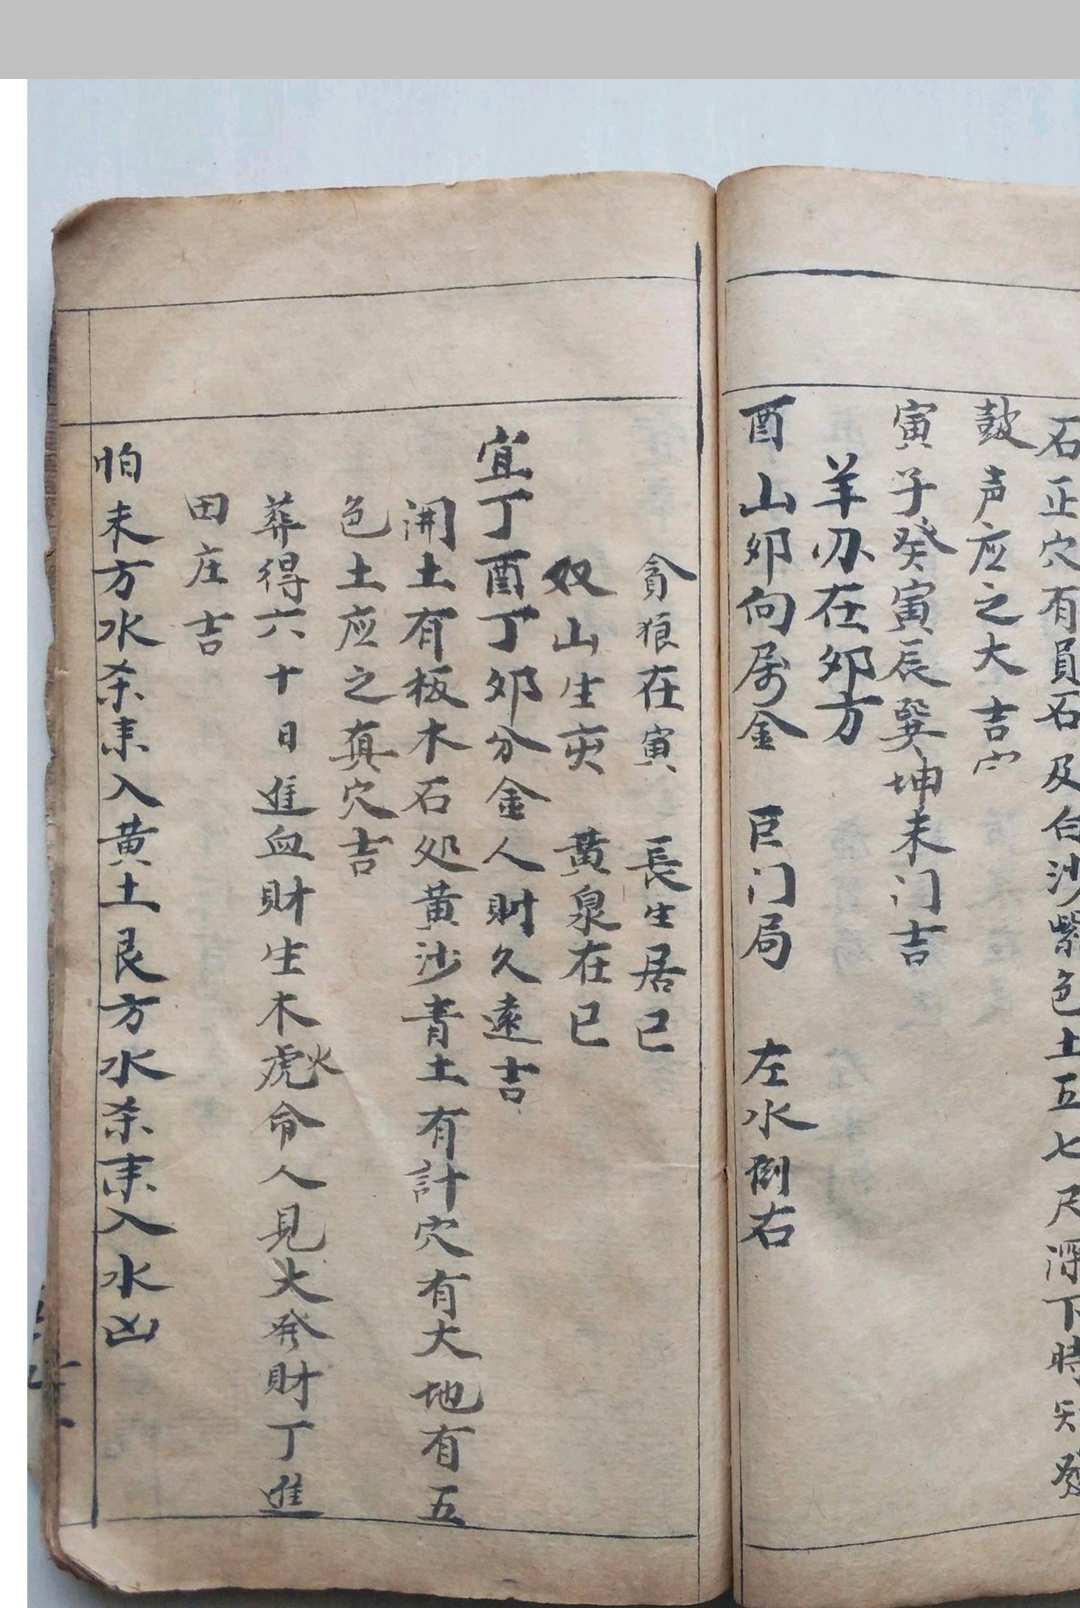 石正穴有員石及白沙紫色土五七尺深下時
鼓声应之大吉穴
寅子癸寅辰巽坤未门吉
羊刃在卯方
酉山卯向属金 巨门局 左水倒右
貪狼在寅 長生居巳
奴山生寅 黄泉在巳
宜丁酉丁卯分金人財久遠吉
開土有板木石处黄沙青土有計穴有大地有五
色土应之真穴吉
葬得六十日進血財生木火虎命人見大発財丁進
田庄吉
怕未方水杀来入黄土艮方水杀来入水凶